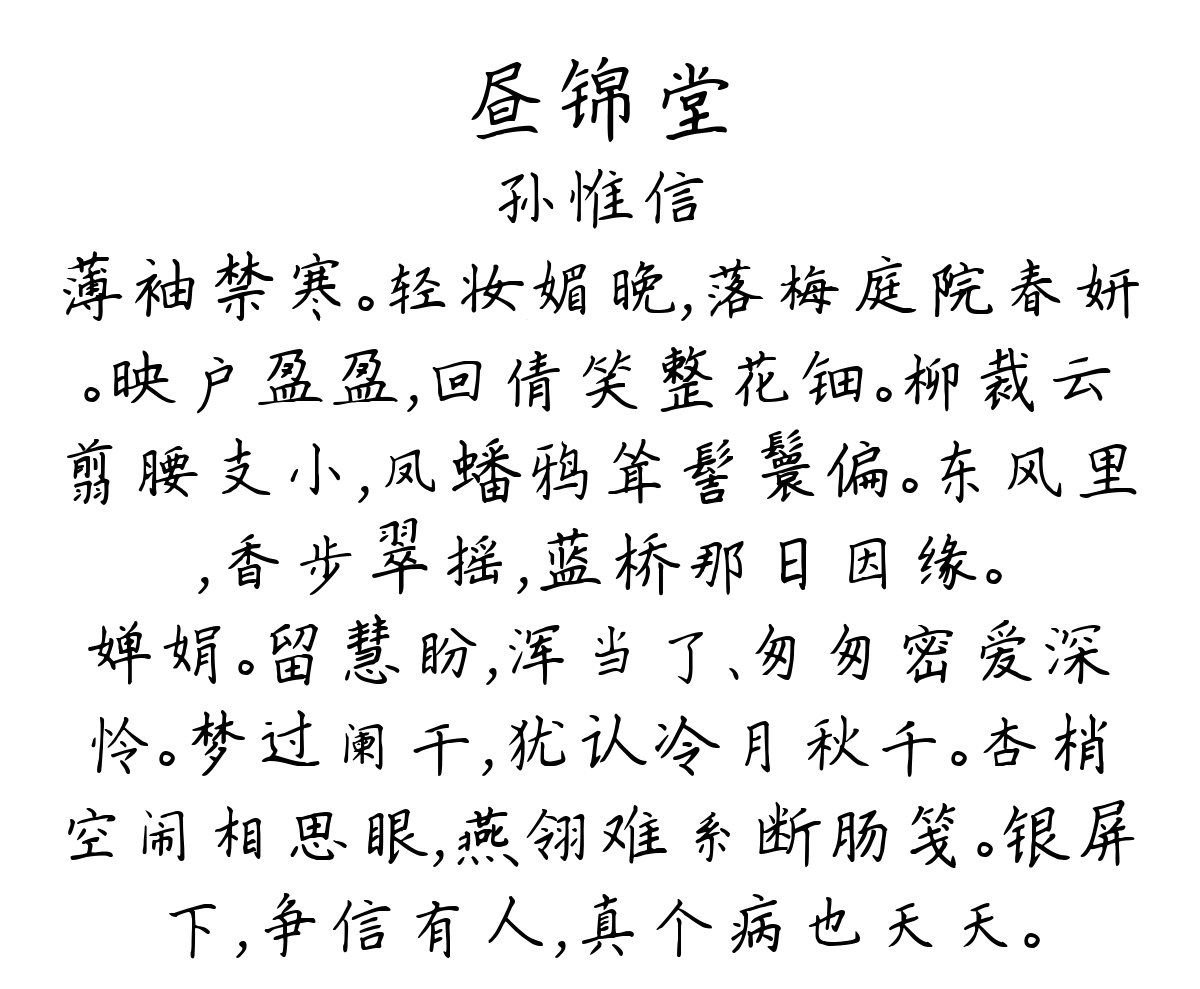 昼锦堂
孙惟信
薄袖禁寒。轻妆媚晚,落梅庭院春妍
。映户盈盈,回倩笑整花钿。柳裁云
剪腰支小,凤蟠鸦耸髻鬟偏。东风里
,香步翠摇,蓝桥那日因缘。
婵娟。留慧盼,浑当了、匆匆密爱深
怜。梦过阑干,犹认冷月秋千。杏梢
空闹相思眼,燕翎难系断肠笺。银屏
下,争信有人,真个病也天天。